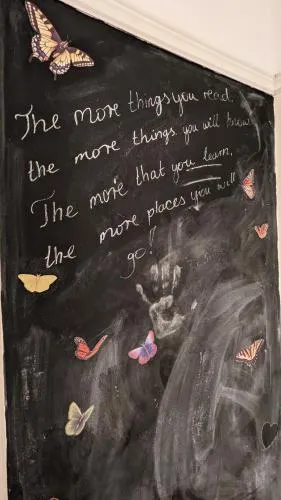 The more things you read,
the more things you will know.
The more that you learn,
the more places you will
go!